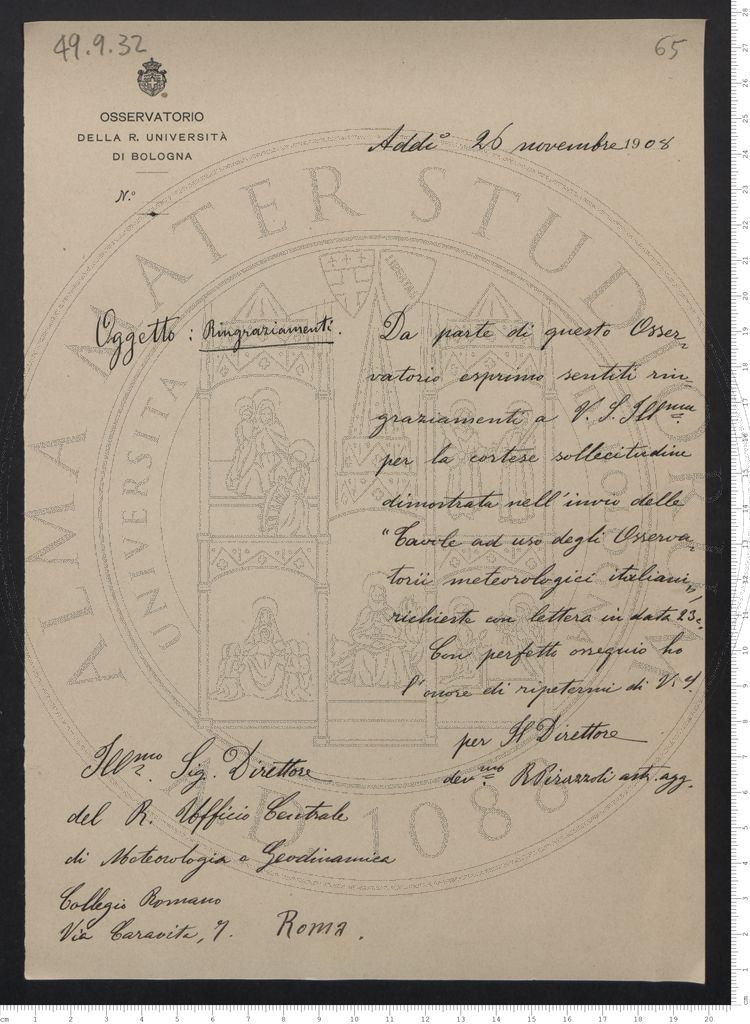 49.9.32
65
OSSERVATORIO
DELLA R. UNIVERSITÀ
DI BOLOGNA
N.°
Addì 26 novembre 1908
Oggetto: Ringraziamenti.
Da parte di questo Osser-
vatorio esprimo sentiti rin-
graziamenti a V. S. Ill.ma
per la cortese sollecitudine
dimostrata nell'invio delle
"Tavole ad uso degli Osserva-
torii meteorologici italiani",
richieste con lettera in data 23.
Con perfetto ossequio ho
l'onore di ripetermi di V. S.
per Il Direttore
dev.mo R Pirazzoli astr. agg.
Ill.mo Sig. Direttore
del R. Ufficio Centrale
di Meteorologia e Geodinamica
Collegio Romano
Via Caravita, 7. Roma.
ALMA MATER STUDIORUM
UNIVERSITÀ DI BOLOGNA
A.D. 1088
LIBERTAS